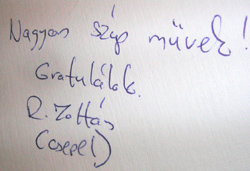 Nagyon szép művek!
Gratulálok.
R. Zoltán
(Csepel)